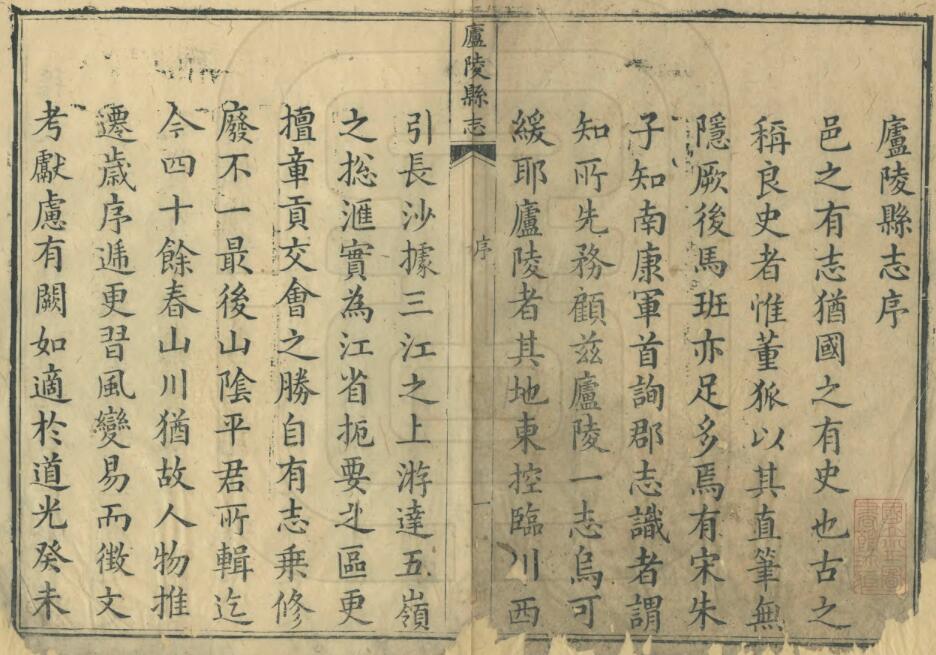 廬陵縣志序
邑之有志猶國之有史也古之
稱良史者惟董狐以其直筆無
隱厥後馬班亦足多焉有宋朱
子知南康軍首詢郡志識者謂
知所先務顧兹廬陵一志烏可
緩耶廬陵者其地東控臨川西
廬陵縣志
序
一
引長沙據三江之上游達五嶺
之揔滙實為江省扼要之區更
擅章貢交會之勝自有志乗修
廢不一最後山陰平君所輯迄
今四十餘春山川猶故人物推
遷歲序遞更習風變易而徴文
考獻慮有闕如適於道光癸未